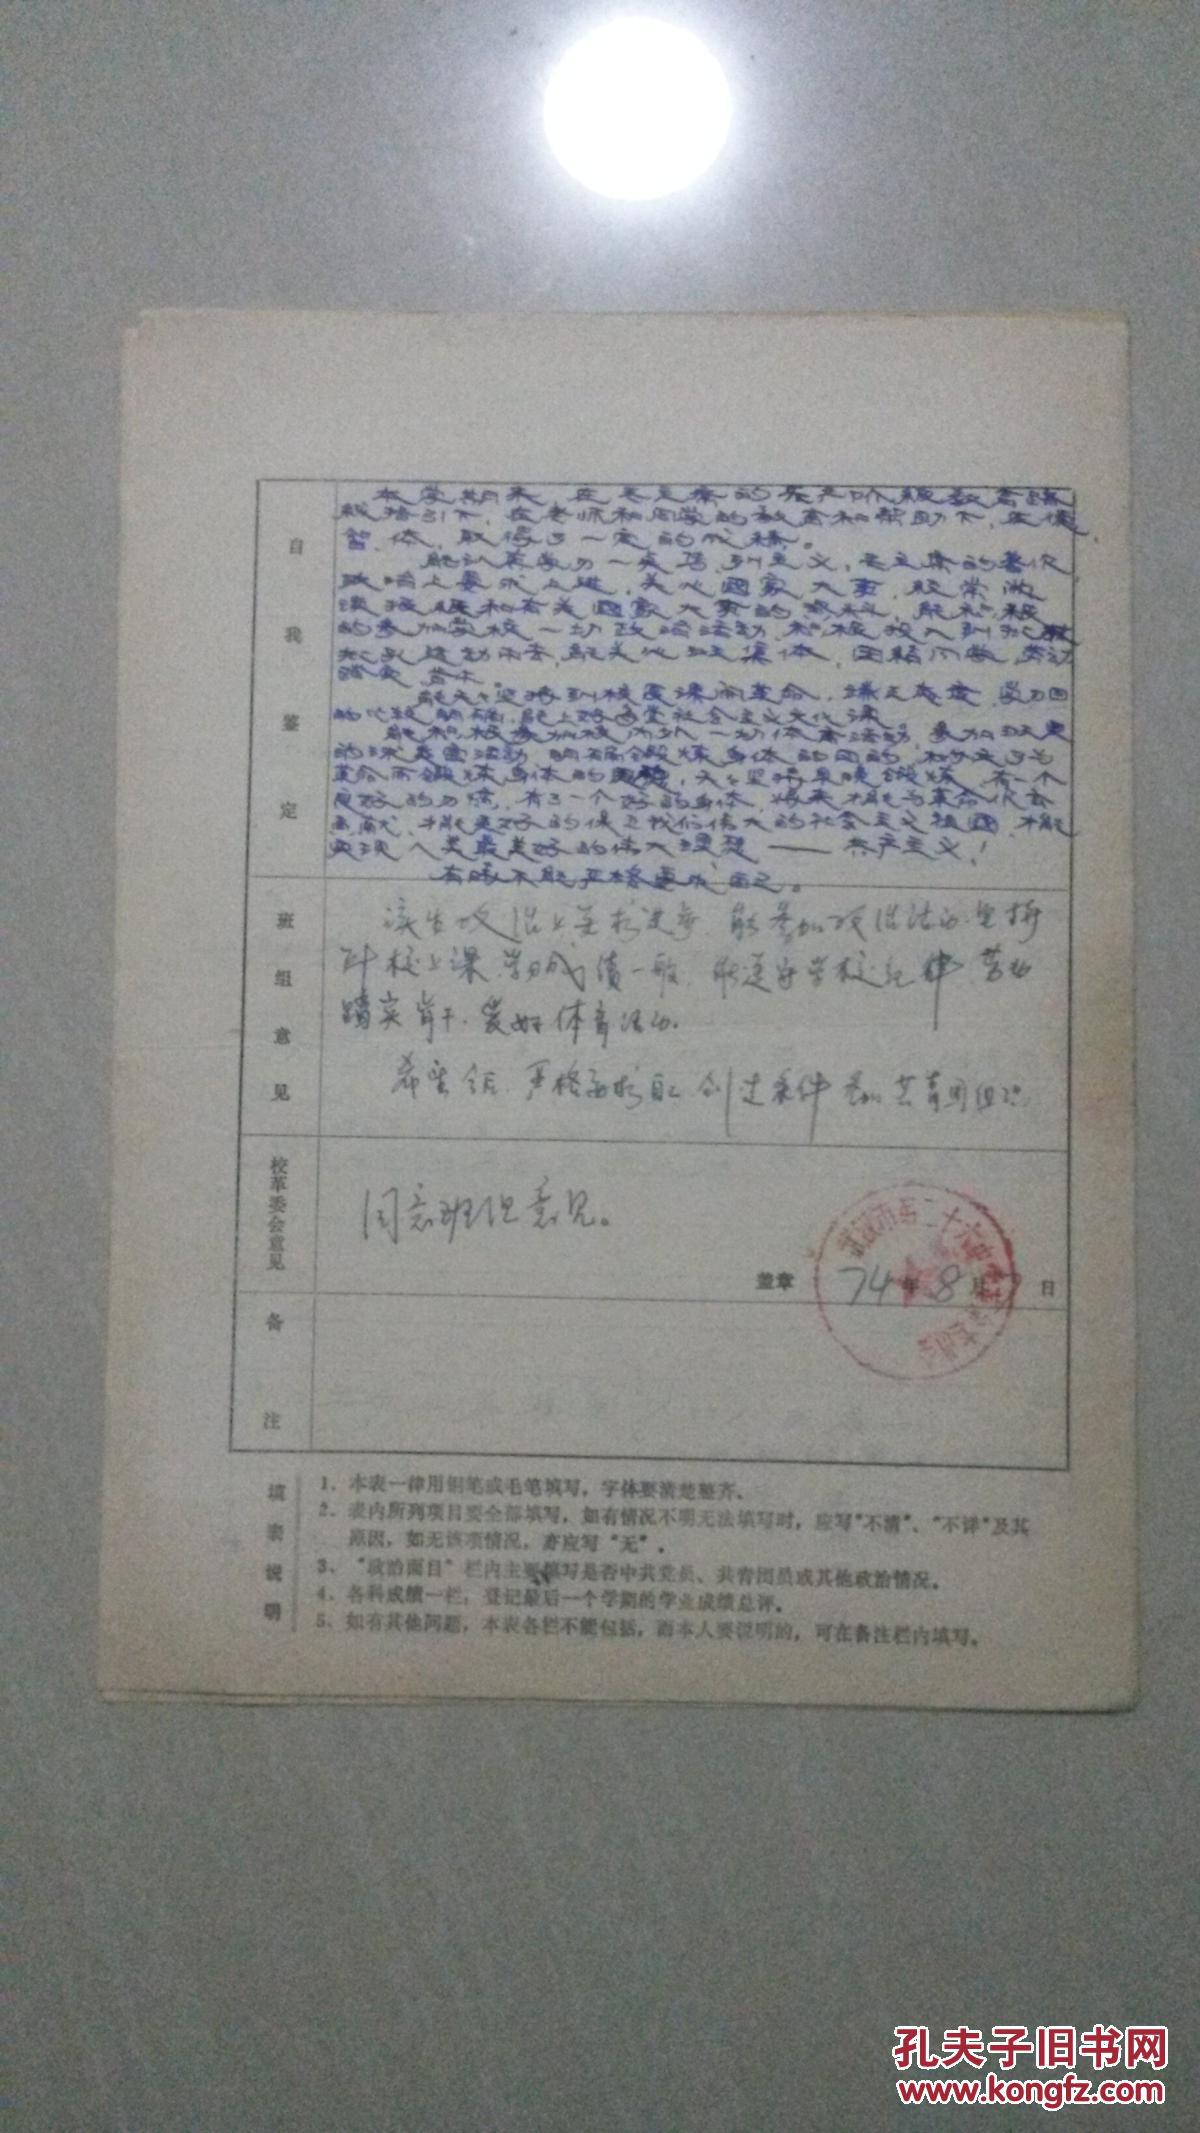 自我鉴定
本学期来，在毛主席的无产阶级教育路
线指引下，在老师和同学的教育和帮助下，在德、
智、体，取得了一定的成绩。
能认真学习马列主义，毛主席的著作，
政治上要求上进，关心國家大事，经常
的参加学校一切政治活动，积极投入到批林
批孔运动中去，能关心班集体，团结同学，劳动
踏实，肯干。
能天天坚持到校复课闹革命，
的比较明确，能上好每堂社会主义文化课
能积极参加校内外一切体育活动，参加班里
的 活动，明确锻炼身体的目的，树立了为
革命而锻炼身体的思想，天天坚持早晚锻炼，有一个
良好的习惯，有了一个好的身体，将来才能为革命作出
贡献，才能更好的保卫我们伟大的社会主义祖國，才能
实现人类最美好的伟大理想——共产主义！
有时不能严格要求自己。
班组意见
该生政治上要求进步，能参加政治活动，坚持
到校上课，学习成绩一般，能遵守学校纪律，劳动
踏实肯干，爱好体育活动。
希望今后，严格要求自己，创造条件参加共青团组织
校革委会意见
同意班组意见。
武汉市第二十六中学革命委员会
盖章 74年8月 日
备注
填表说明
1．本表一律用钢笔或毛笔填写，字体要清楚整齐。
2．表内所列项目要全部填写，如有情况不明无法填写时，应写“不清”、“不详”及其
原因，如无该项情况，亦应写“无”。
3．“政治面目”栏内主要填写是否中共党员、共青团员或其他政治情况。
4．各科成绩一栏，登记最后一个学期的学业成绩总评。
5．如有其他问题，本表各栏不能包括，而本人要说明的，可在备注栏内填写。
孔夫子旧书网
www.kongfz.com